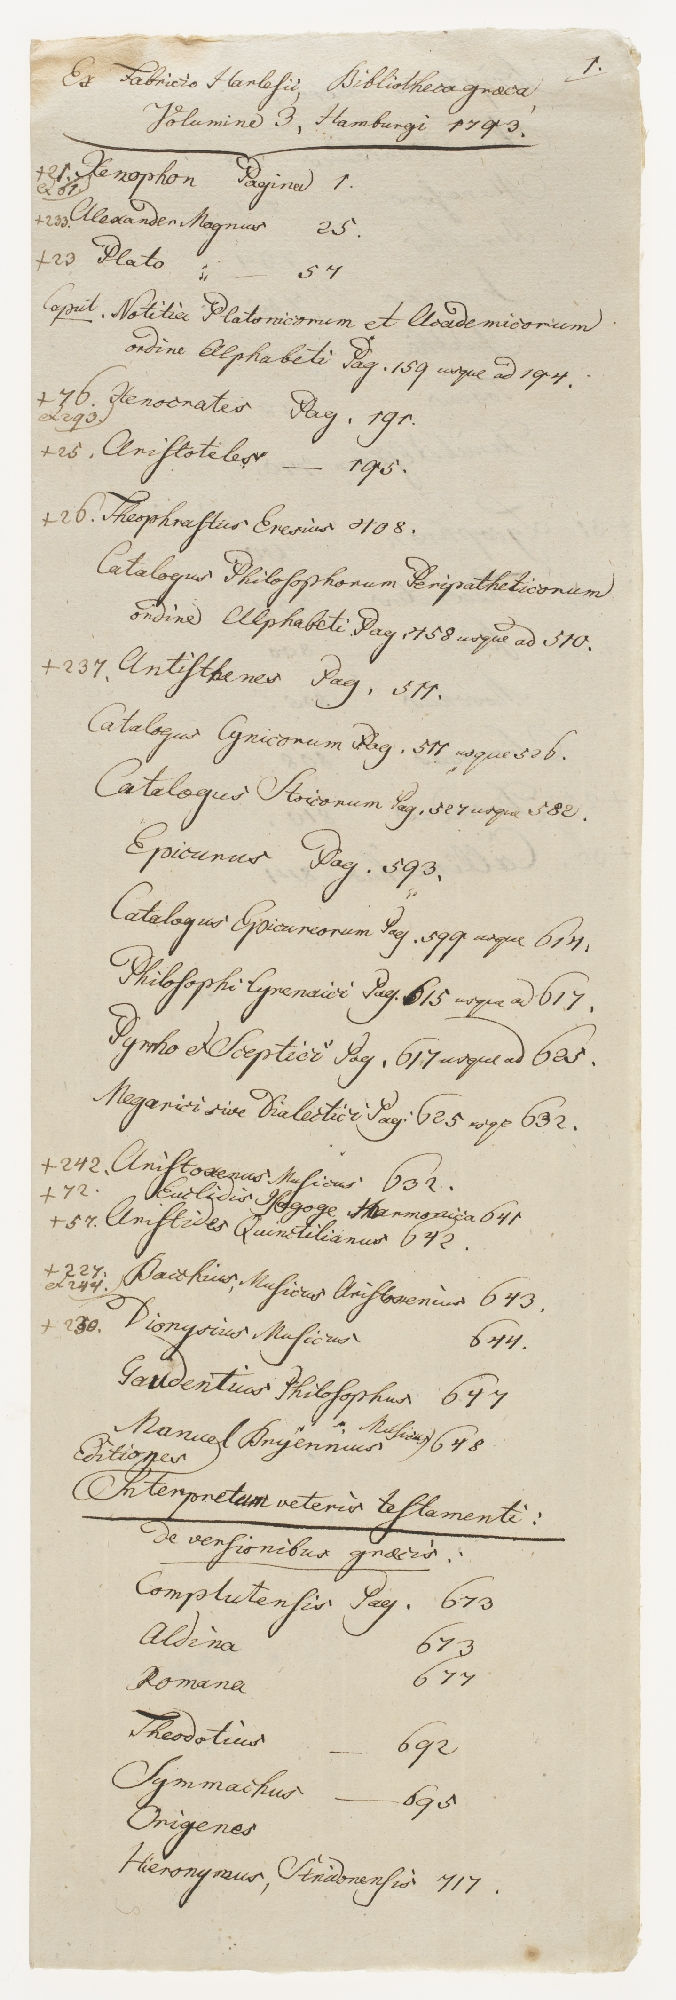 1.
Ex Fabricio Harlesii, Bibliotheca græca,
Volumine 3, Hamburgi 1793.
+21. Xenophon Pagina 1.
et 61.
+233. Alexander Magnus 25.
+23 Plato „ — 57
Caput. Notitia Platonicorum et Academicorum
ordine Alphabeti Pag. 159 usque ad 194.
+76. Xenocrates Pag. 191.
et 293.
+25. Aristoteles — 195.
+26. Theophrastus Eresius 408.
Catalogus Philosophorum Peripatheticorum
ordine Alphabeti Pag. 458 usque ad 510.
+237. Antisthenes Pag. 511.
Catalogus Cynicorum Pag. 511 usque 526.
Catalogus Stoicorum Pag. 527 usque 582.
Epicurus Pag. 593.
Catalogus Epicureorum Pag. 599 usque 614.
Philosophi Cyrenaici Pag. 615 usque ad 617.
Pyrrho et Sceptici Pag. 617 usque ad 625.
Megarici sive Dialectici Pag. 625 usqe 632.
+242. Aristoxenus Musicus 632.
+72. Euclidis Isagoge Harmonica 641
+57. Aristides Quinctilianus 642.
+227. Bacchius, Musicus Aristoxenius 643.
et 244.
+230. Dionysius Musicus 644.
Gaudentius Philosophus 647
Manuel Bryennius Musicus 648
Editiones
Interpretum veteris testamenti:
De versionibus græcis.
Complutensis Pag. 673
Aldina 673
Romana 677
Theodotius — 692
Symmachus — 695
Origenes
Hieronymus, Stridonensis 717.